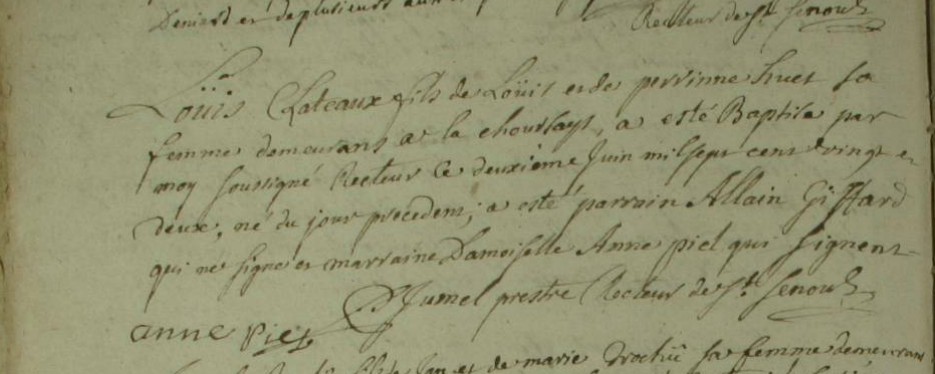 Deniard et de plusieurs autres
Recteur de St Senoux
Loüis Chateaux fils de Loüis et de perrinne huet sa
femme demeurans a la chouslays, a esté Baptisé par
moy soussigné Recteur Ce deuxième Juin mil sept cent vingt et
deux, né du jour precedent; a esté parrain Allain Giffard
qui ne signe et marraine Damoiselle Anne piel qui signent
Jumel prestre Recteur de St Senoux
anne piel
fils de Jan et de marie Trochü sa femme demeurans